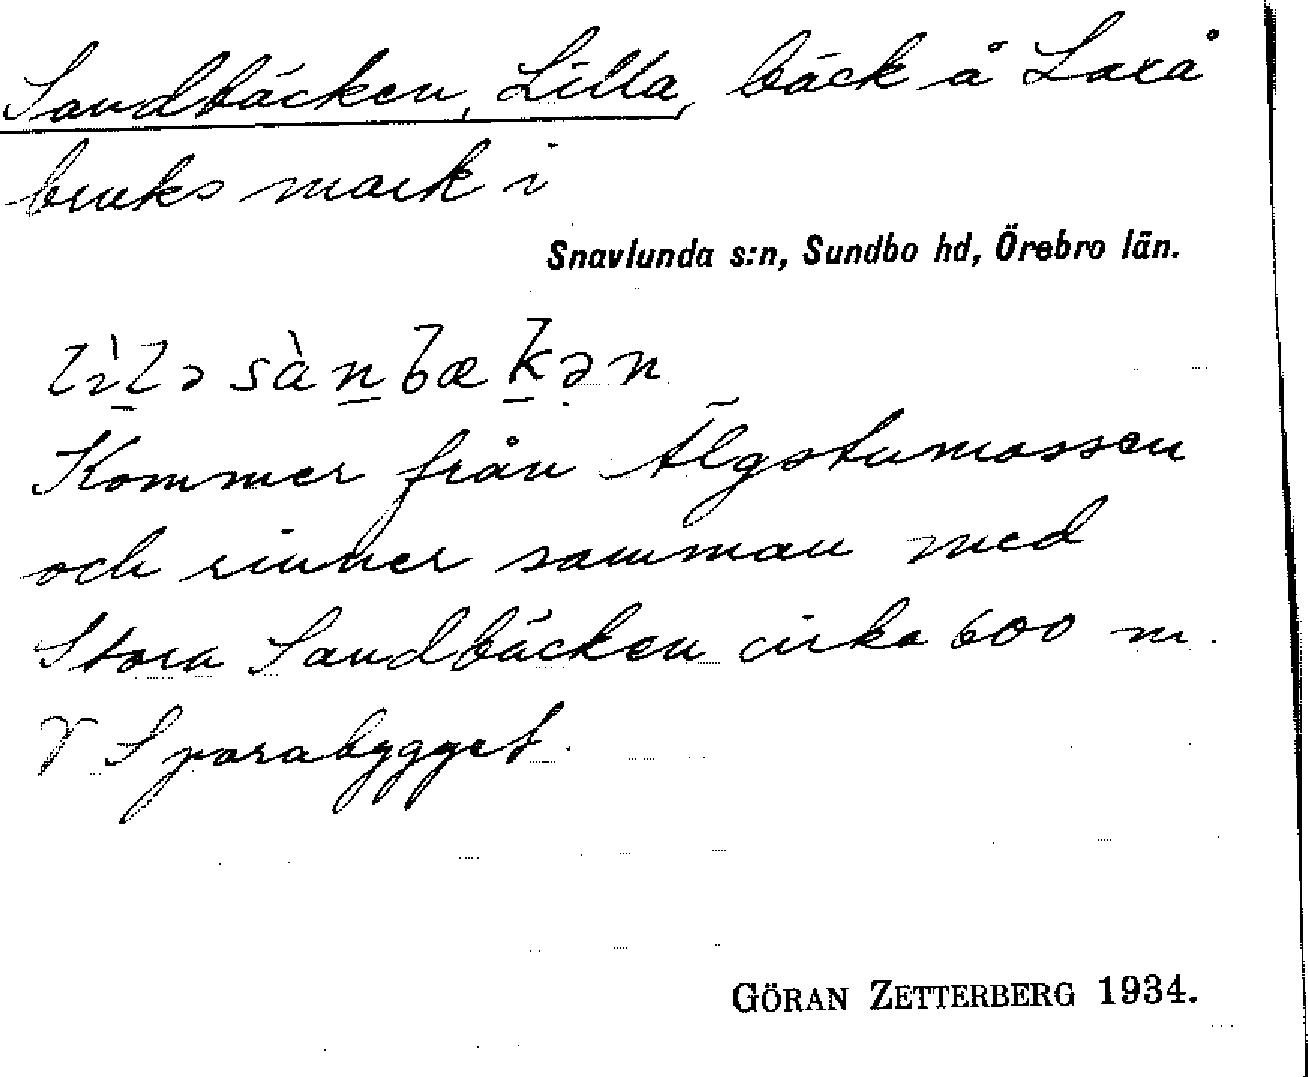 Sandbäcken, Lilla, bäck å Laxå
bruks mark i
Snavlunda s:n, Sundbo hd, Örebro län.
lìlə sànbækən
Kommer från Älgstumossen
och rinner samman med
Stora Sandbäcken cirka 600 m.
V Sparabygget.
GÖRAN ZETTERBERG 1934.